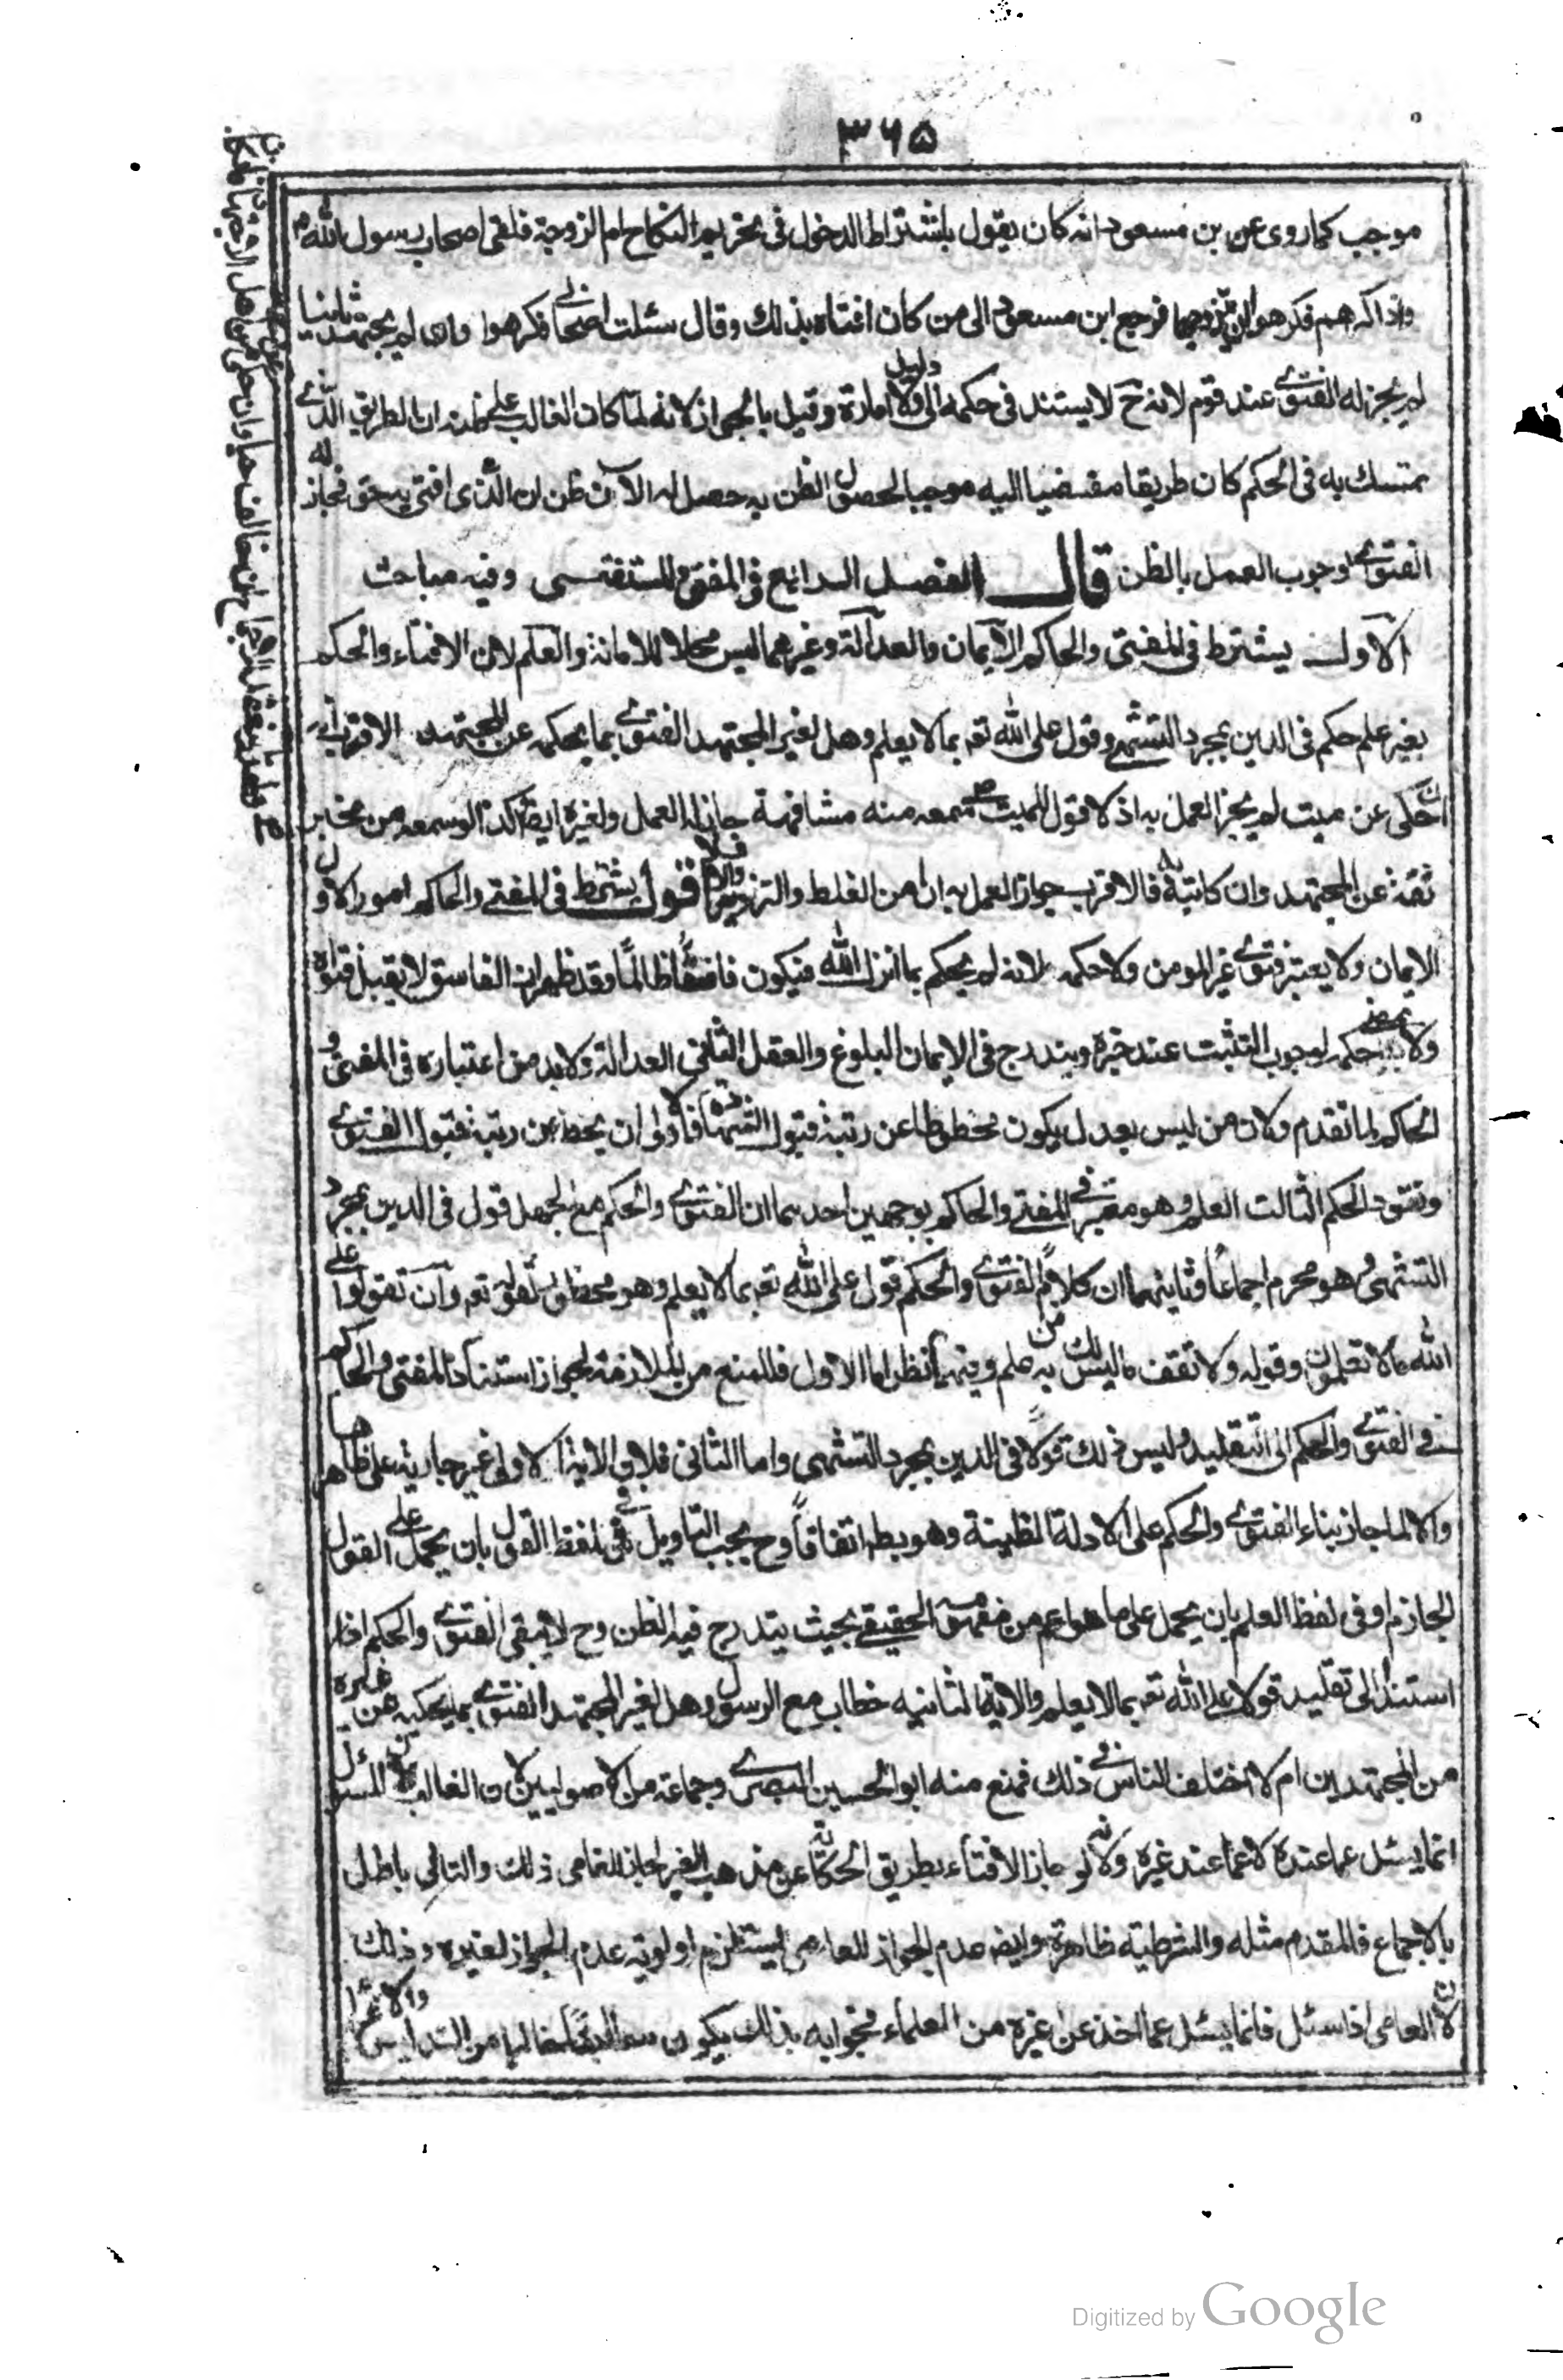 ٣٦٥
موجب كما روى عن بن مسعود انه كان يقول باشتراط الدخول فى تحريم النكاح ام الزوجة فلقى اصحاب رسول الله ص
وذاكرهم فكرهوا ان يتزوجها فرجع ابن مسعود الى من كان افتاه بذلك وقال سئلت اصحابى فكرهوا وان لم يجتهد ثانيا
لم يجز له الفتوى عند قوم لانه ح لا يستند فى حكمه الى دليل ولا امارة وقيل بالجواز لانه لما كان الغالب على ظنه ان الطريق الذى
تمسك به فى الحكم كان طريقا مفضيا اليه موجبا لحصول الظن به حصل له الآن ظن ان الذى افتى به حق فجاز له
الفتوى لوجوب العمل بالظن قال الفصل الرابع فى المفتى والمستفتى وفيه مباحث
الاول يشترط فى المفتى والحاكم الايمان والعدالة وغيرهما ليس محلا للامانة والعلم لان الافتاء والحكم
بغير علم حكم فى الدين بمجرد التشهى وقول على الله تعه بما لا يعلم وهل لغير المجتهد الفتوى بما يحكيه عن المجتهد الاقرب انه
ان حكى عن ميت لم يجز العمل به اذ لا قول للميت سمعه منه مشافهة جاز له العمل ولغيره ايضا وكذا لو سمعه من مخبر
ثقة عن المجتهد وان كاتبه فالاقرب جواز العمل به ان امن الغلط والتزوير والا فلا اقول يشترط فى المفتى والحاكم امور الاول
الايمان ولا يعتبر فتوى غير المومن ولا حكمه لانه لم يحكم بما انزل الله فيكون فاسقا ظالما وقد ظهر ان الفاسق لا يقبل فتواه
ولا حكمه لوجوب التثبت عند خبره ويندرج فى الايمان البلوغ والعقل الثانى العدالة ولا بد من اعتباره فى المفتى و
الحاكم لما تقدم ولان من ليس بعدل يكون محطوطا عن رتبة قبول الشهادة فاولى ان يحط عن رتبة قبول الفتوى
ونفوذ الحكم الثالث العلم وهو معتبر فى المفتى والحاكم بوجهين احدهما ان الفتوى والحكم مع الجهل قول فى الدين بمجرد
التشهى وهو محرم اجماعا وثانيهما ان كلا من الفتوى والحكم قول على الله تعه بما لا يعلم وهو محظور لقوله تعه وان تقولوا على
الله ما لا تعلمون وقوله ولا تقف ما ليس لك به علم وفيهما نظر اما الاول فللمنع من الملازمة لجواز استناد المفتى والحاكم
فى الفتوى والحكم الى التقليد وليس ذلك قولا فى الدين بمجرد التشهى واما الثانى فلان الاية الاولى غير جارية على ظاهرها
والا لما جاز بناء الفتوى والحكم على الادلة الظنية وهو بط اتفاقا وح يجب التاويل فى لفظ القول بان يحمل على القول
الجازم او فى لفظ العلم بان يحمل على ما هو اعم من مفهومه الحقيقى بحيث يندرج فيه الظن وح لا يبقى الفتوى والحكم اذا
استند الى تقليد قولا على الله تعه بما لا يعلم والاية الثانيه خطاب مع الرسول وهل لغير المجتهد الفتوى بما يحكيه عن غيره
من المجتهدين ام لا اختلف الناس فى ذلك فمنع منه ابو الحسين البصرى وجماعة من الاصوليين لان الغالب ان المسئول
انما يسئل عما عنده لا عما عند غيره ولانه لو جاز الافتاء بطريق الحكاية عن مذهب الغير لجاز للعامى ذلك والتالى باطل
بالاجماع فالمقدم مثله والشرطية ظاهرة وايضا عدم الجواز للعامى يستلزم اولوية عدم الجواز لغيره وذلك
لان العامى اذا سئل فانما يسئل عما اخذ عن غيره من العلماء فجوابه بذلك يكون خاليا من التدليس
Digitized by Google